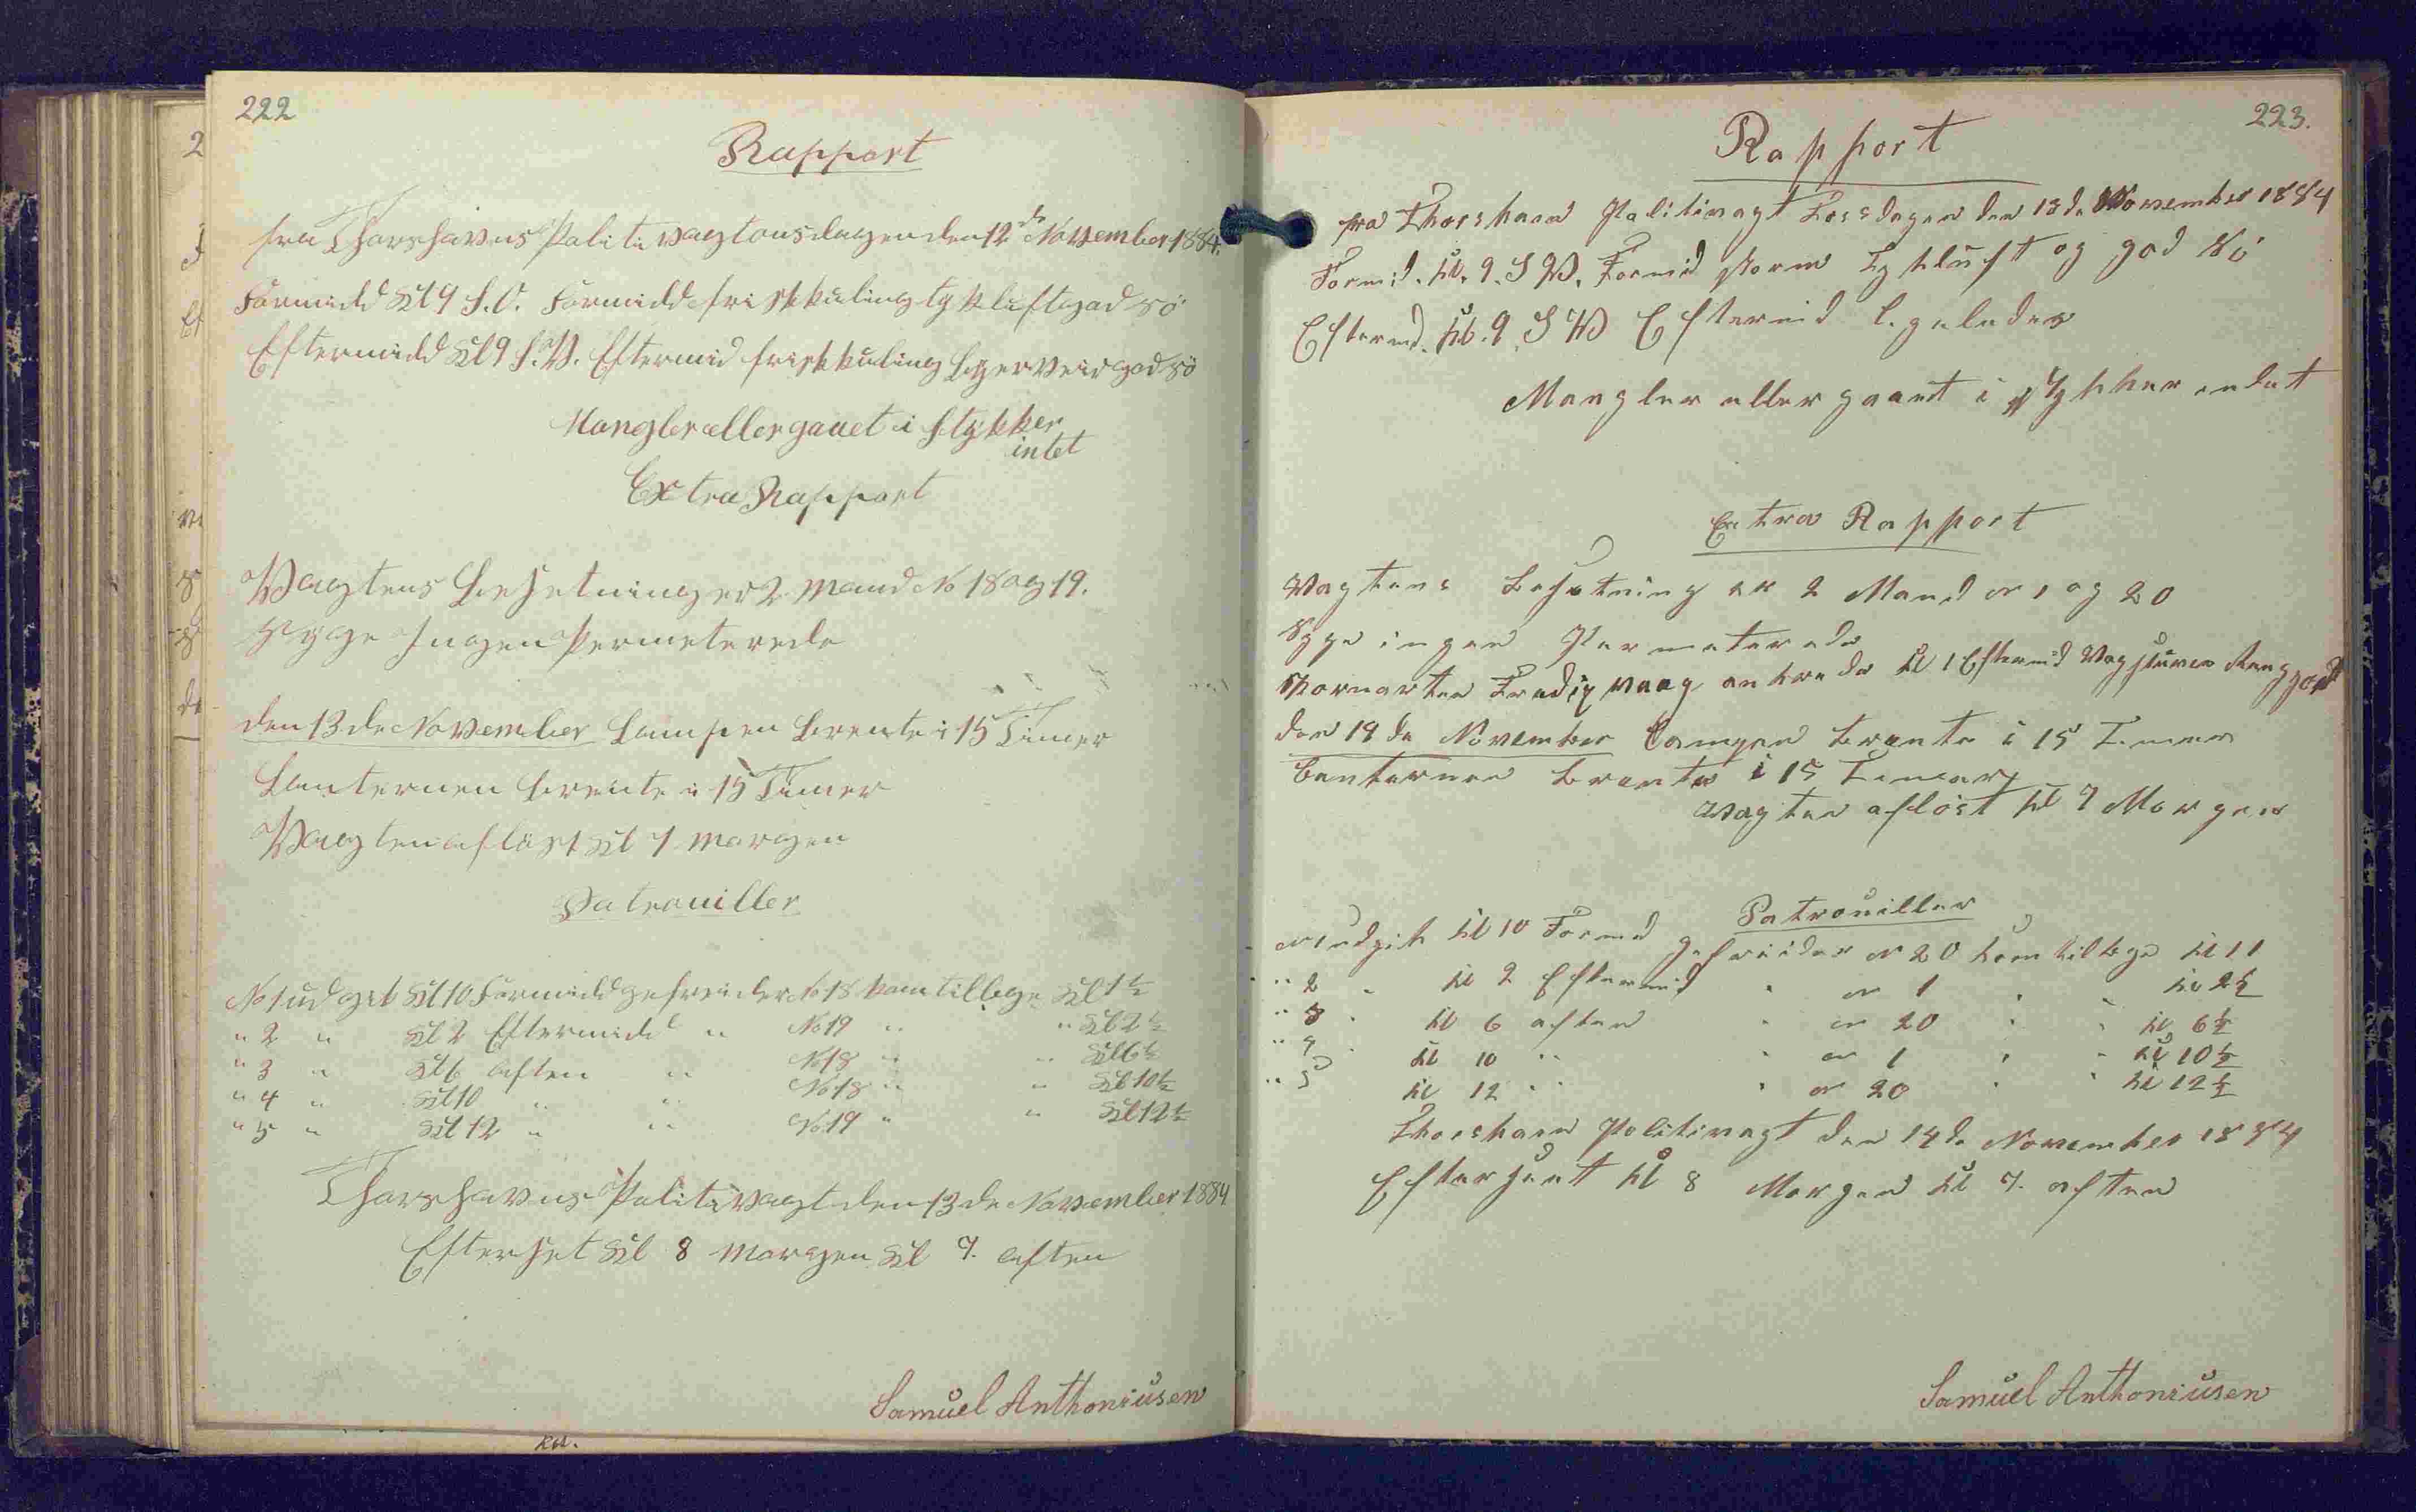 222
Rapport
fra Thorshavns Politivagt onsdagen den 12de November 1884.
Formidd Kl 9 S.O. Formidd friskkuling tykluft god sö
Eftermidd Kl 9 S.V. Eftermid friskkuling god sö
Mangler eller gaaet i Stykker
intet
Extra Rapport
Vagtens Besetning er 2 Mand No 18 og 19.
Syge Ingen Permeterede
den 13de November Lampen brente i 15 Timer
Lanternen brente i 15 Timer
Vagten aflöst Kl 7 Morgen
Patrouiller
No 1 udgik Kl 10 Formidd gefreider No 18 kom tilbage Kl 1½
" 2 " Kl 2 Eftermidd " No 19 " " Kl 2½
" 3 " Kl 6 Aften " No 18 " " Kl 6½
" 4 " Kl 10 " " No 18 " " Kl 10½
" 5 " Kl 12 " " No 19 " " Kl 12½
Thorshavns Politivagt den 13de November 1884
Efterset Kl 8 Morgen Kl 7. Aften
Samuel Anthoniusen
223.
Rapport
fra Thorshavn Politivagt Torsdagen den 13de November 1884
Formid. Kl. 9. S V. Formid storm Tykluft og god Sö
Eftermd. Kl. 9 S V Eftermid ligeledes
Mangler eller gaaet i Stykker entet
Extra Rapport
Vagtens Besetning er 2 Mand nr 1 og 20
Syge ingen Permeterede
ankrede Kl 1 Eftermid
den 14de November Lampen brente i 15 Timer
Lanternen brente i 15 Timer
Vagten aflöst Kl 7 Morgen
Patrouiller
nr 1 udgik Kl 10 Formd gefreider nr 20 kom tilbage Kl 11
" 2 " Kl 2 Eftermid " nr 1 " " Kl 2½
" 3 " Kl 6 aften " nr 20 " " Kl 6½
" 4 " Kl 10 " " nr 1 " " Kl 10½
" 5 Kl 12 " " nr 20 " " Kl 12½
Thorshavn Politivagt den 14de November 1884
Efterseet Kl 8 Morgen Kl 7. aften
Samuel Anthoniusen